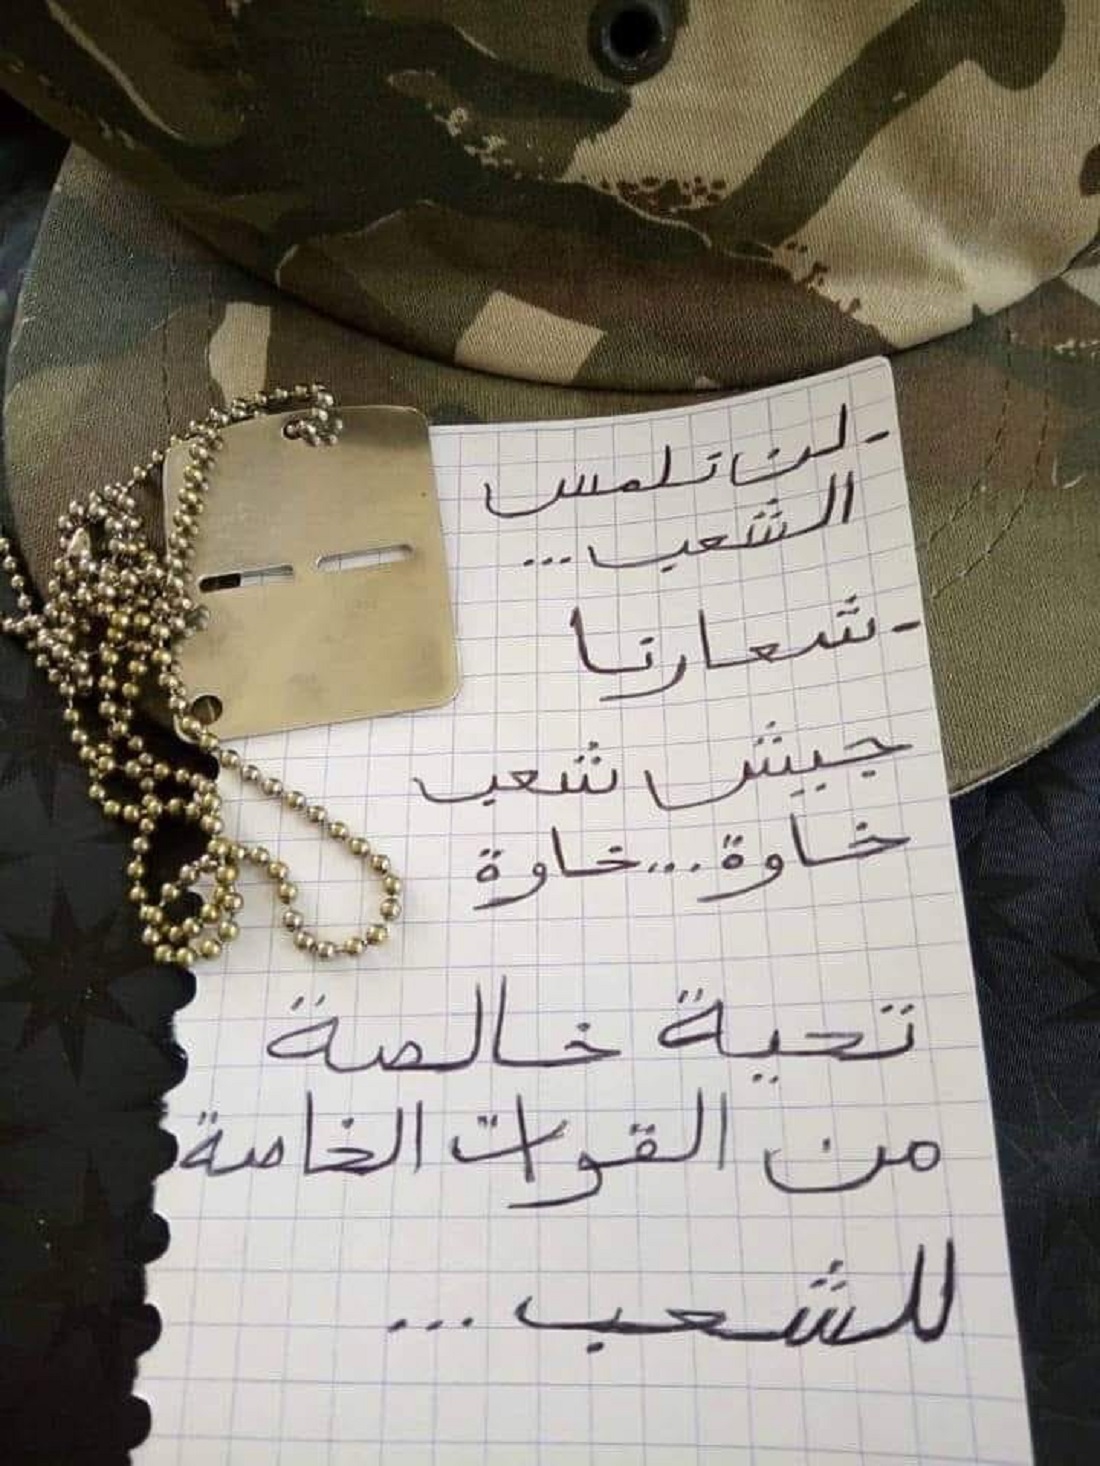 - لن تلمس
الشعب...
- شعارنا
جيش شعب
خاوة...خاوة
تحية خالصة
من القوات الخاصة
للشعب...